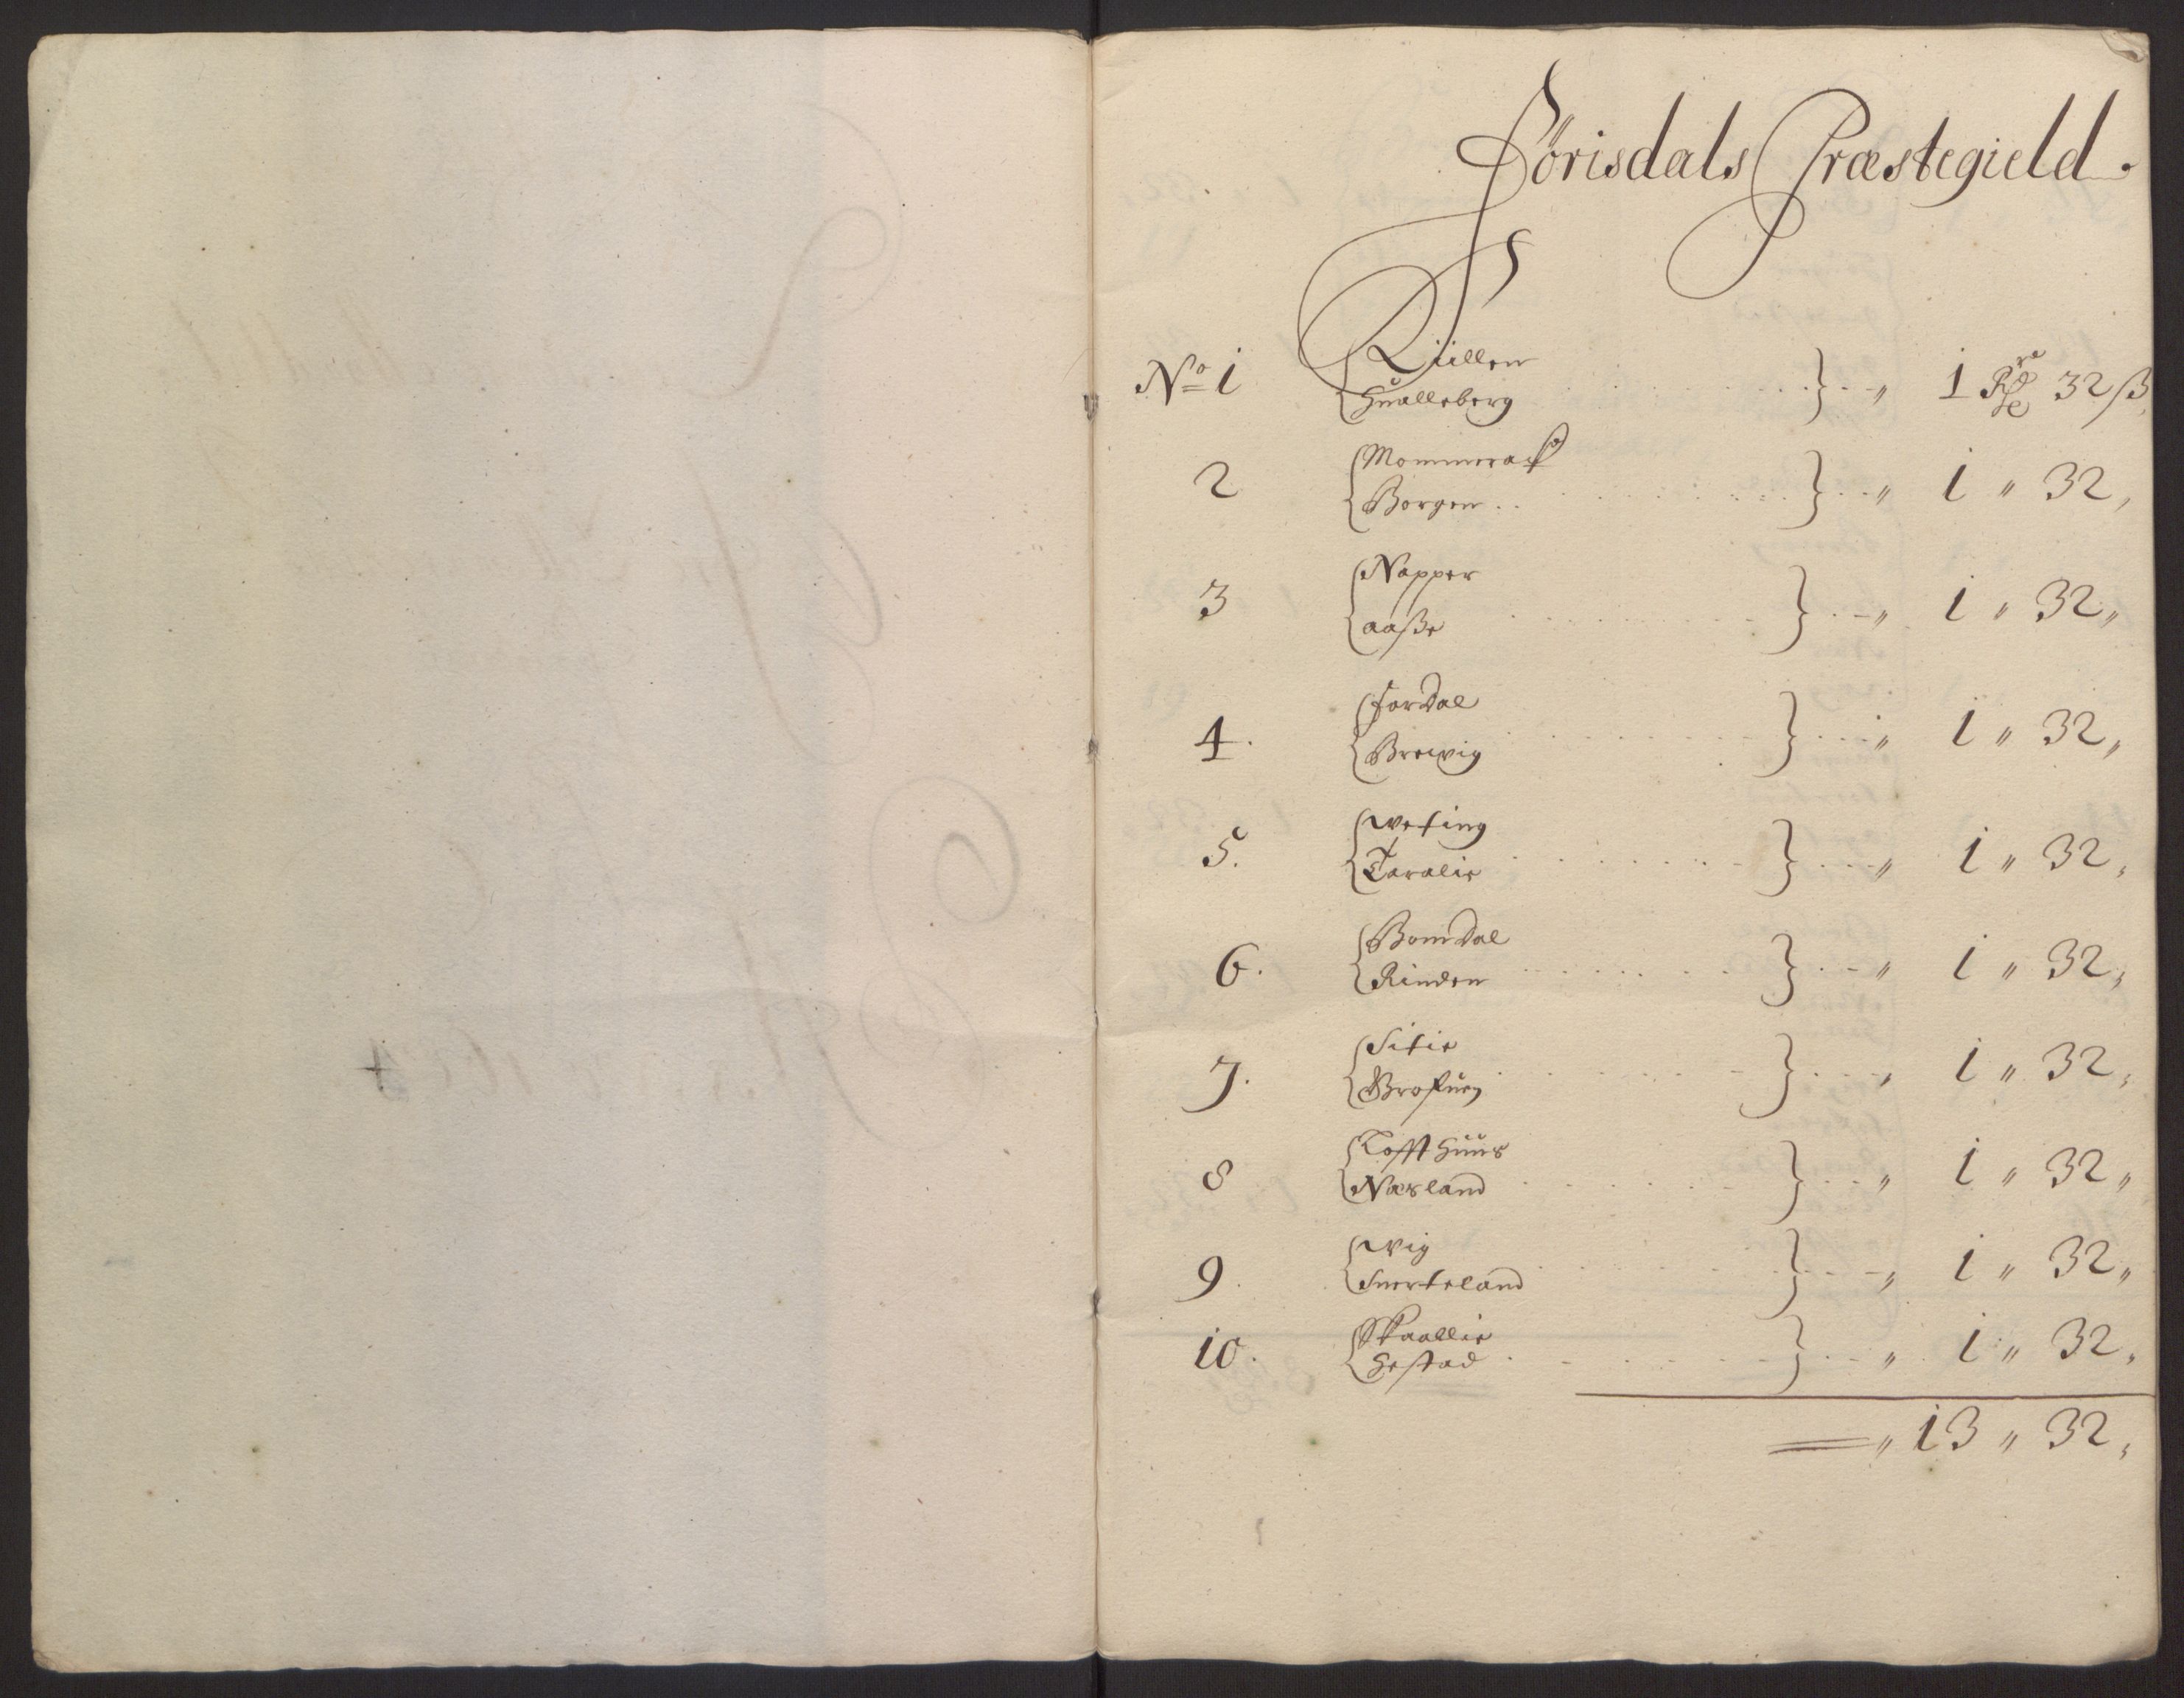 Jörisdals Præstegield.
No 1 Kiillen
Hualleberg 1 Rdr 32 ß
2 Mommerach
Borgen 1 " 32 "
3 Napper
aaße 1 " 32 "
4. Jordal
Brewig 1 " 32 "
5. weting
Taralie 1 " 32 "
6. Bomdal
Rinden 1 " 32 "
7. Sitie
Brokuey 1 " 32 "
8 Toffthuus
Næsland 1 " 32 "
9. wig
Snerteland 1 " 32 "
10. Skaallie
Hestad 1 " 32 "
" 13 " 32 "